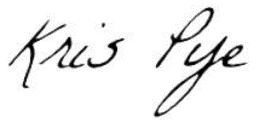 Kris Pye